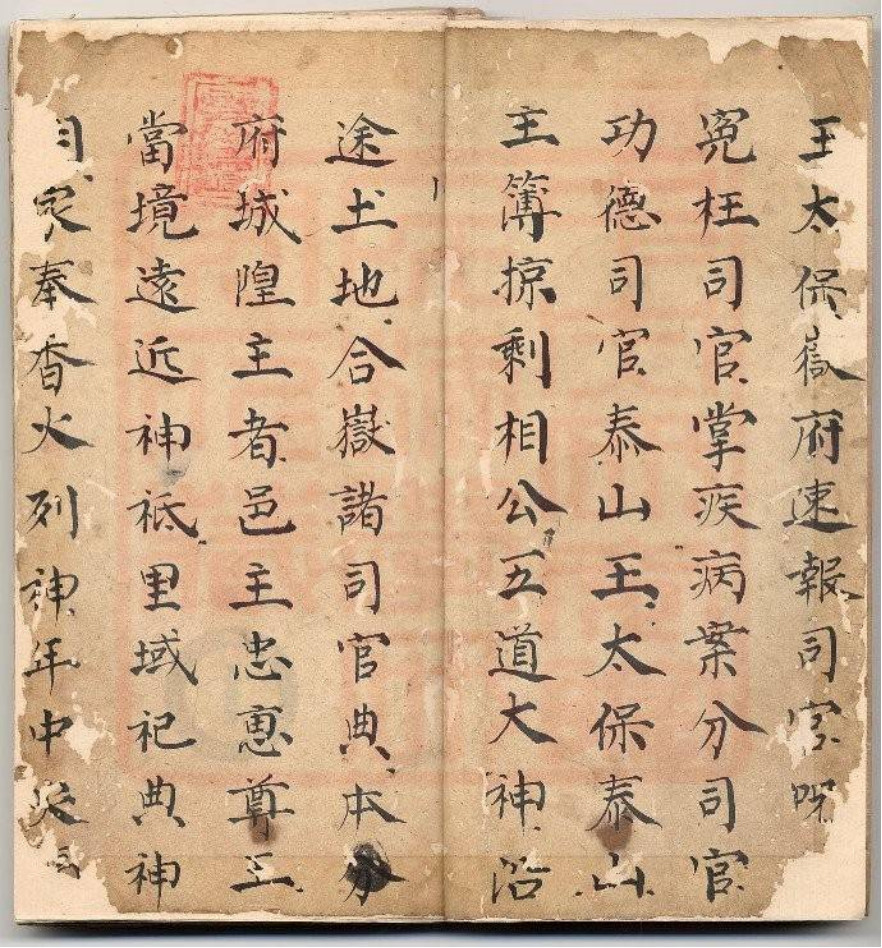 王太保嶽府速報司官呪
寃枉司官掌疾病案分司官
功德司官泰山王太保泰山
主簿掠剩相公五道大神沿
途土地合嶽諸司官典本分
府城隍主者邑主忠惠尊王
當境遠近神祇里域祀典神
家奉香火列神年中災